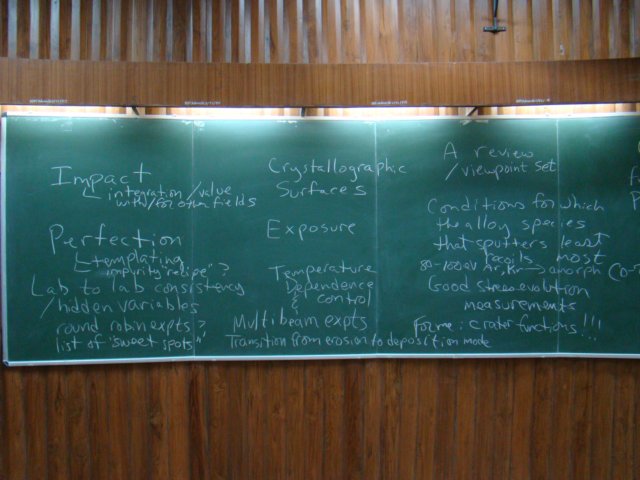 Impact
integration/value
with/for other fields
Perfection
templating
impurity "recipe"?
Lab to lab consistency
/hidden variables
round robin expts?
list of "sweet spots"
Crystallographic
Surfaces
Exposure
Temperature
Dependence
&
control
Multibeam expts
Transition from erosion to deposition mode
A review
/viewpoint set
Conditions for which
the alloy species
that sputters least
recoils most
80-100eV Ar, Kr → amorph
Good stress evolution
measurements
Forme: crater functions!!!
Co-